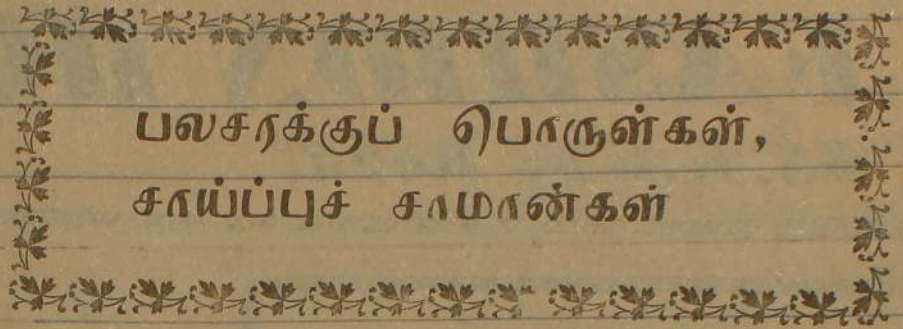 பலசரக்குப் பொருள்கள்,
சாய்ப்புச் சாமான்கள்